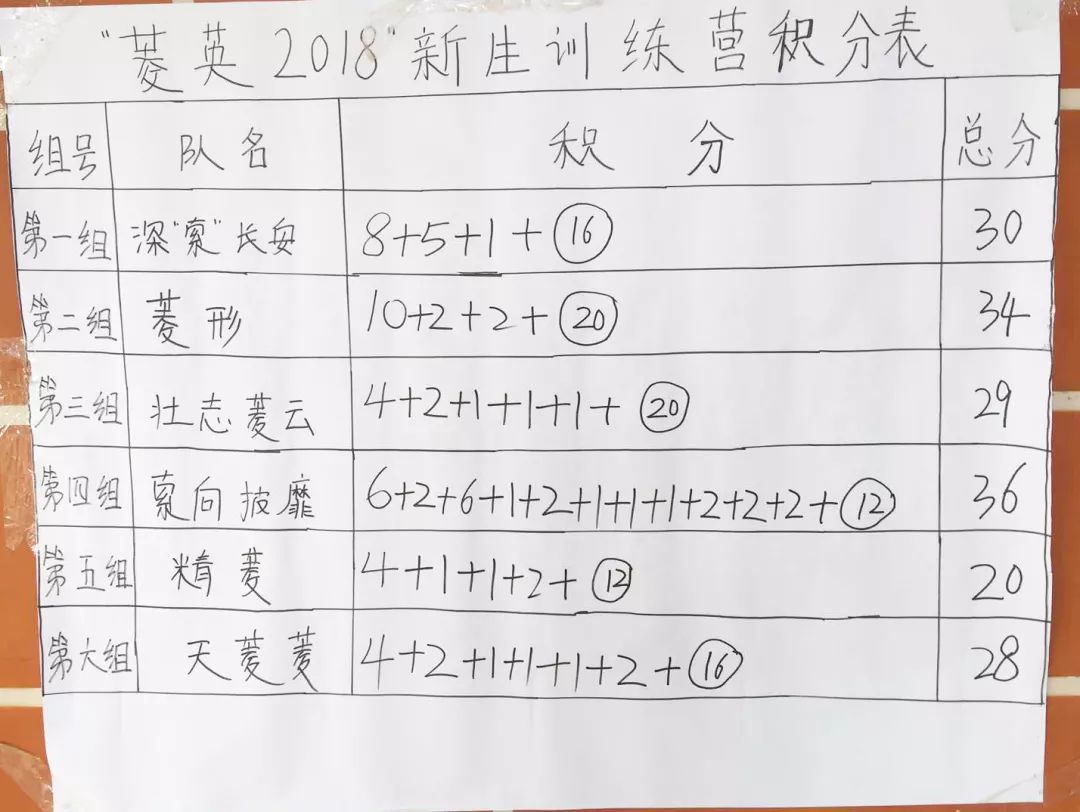 “菱英2018”新生训练营积分表
组号 队名 积分 总分
第一组 深“索”长安 8+5+1+⑯ 30
第二组 菱形 10+2+2+⑳ 34
第三组 壮志菱云 4+2+1+1+1+⑳ 29
第四组 索向披靡 6+2+6+1+2+1+1+1+2+2+2+⑫ 36
第五组 精菱 4+1+1+2+⑫ 20
第六组 天菱菱 4+2+1+1+1+2+⑯ 28